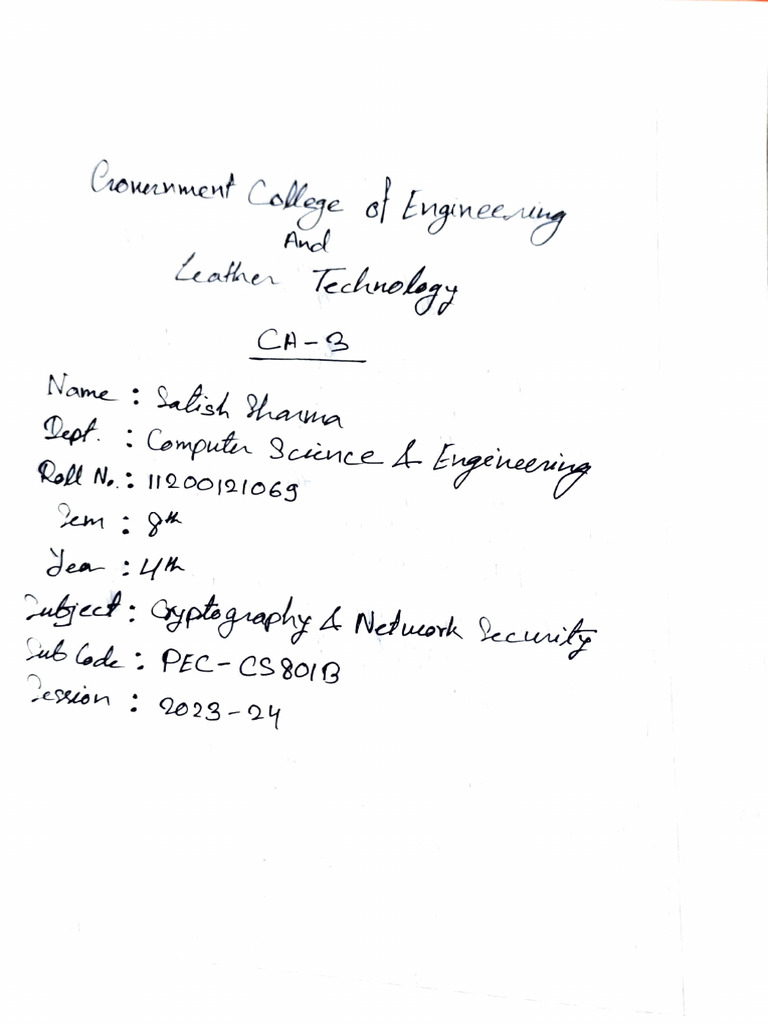 Government College of Engineering
And
Leather Technology
CA-3
Name : Satish Sharma
Dept. : Computer Science & Engineering
Roll No. : 11200121069
Sem : 8th
Year : 4th
Subject : Cryptography & Network Security
Sub Code : PEC-CS801B
Session : 2023-24